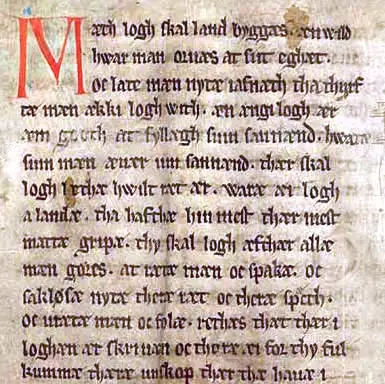 Mæth logh skal land byggæs. æn wild
hwar man oruæs at sit eghæt.
oc late mæn nytæ iafnæth tha thyrf
tæ mæn ækki logh with. æn ængi logh ær
æm goth at fyllægh sum sannænd. hwaræ
sum mæn æuær um sannænd. thær skal
logh lethæ hwilt ræt ær. waræ æi logh
a landæ. tha hafthæ hin mest thær mest
mattæ gripæ. thy skal logh æfthær allæ
mæn gøræs. at rætæ mæn oc spakæ. oc
sakløsæ nytæ theræ ræt oc theræ spæth.
oc urætæ mæn oc folæ. rethæs thæt thær i
loghæn ær skriuan oc thoræ æi for thy ful
kummæ theræ unskop thær the hauæ i